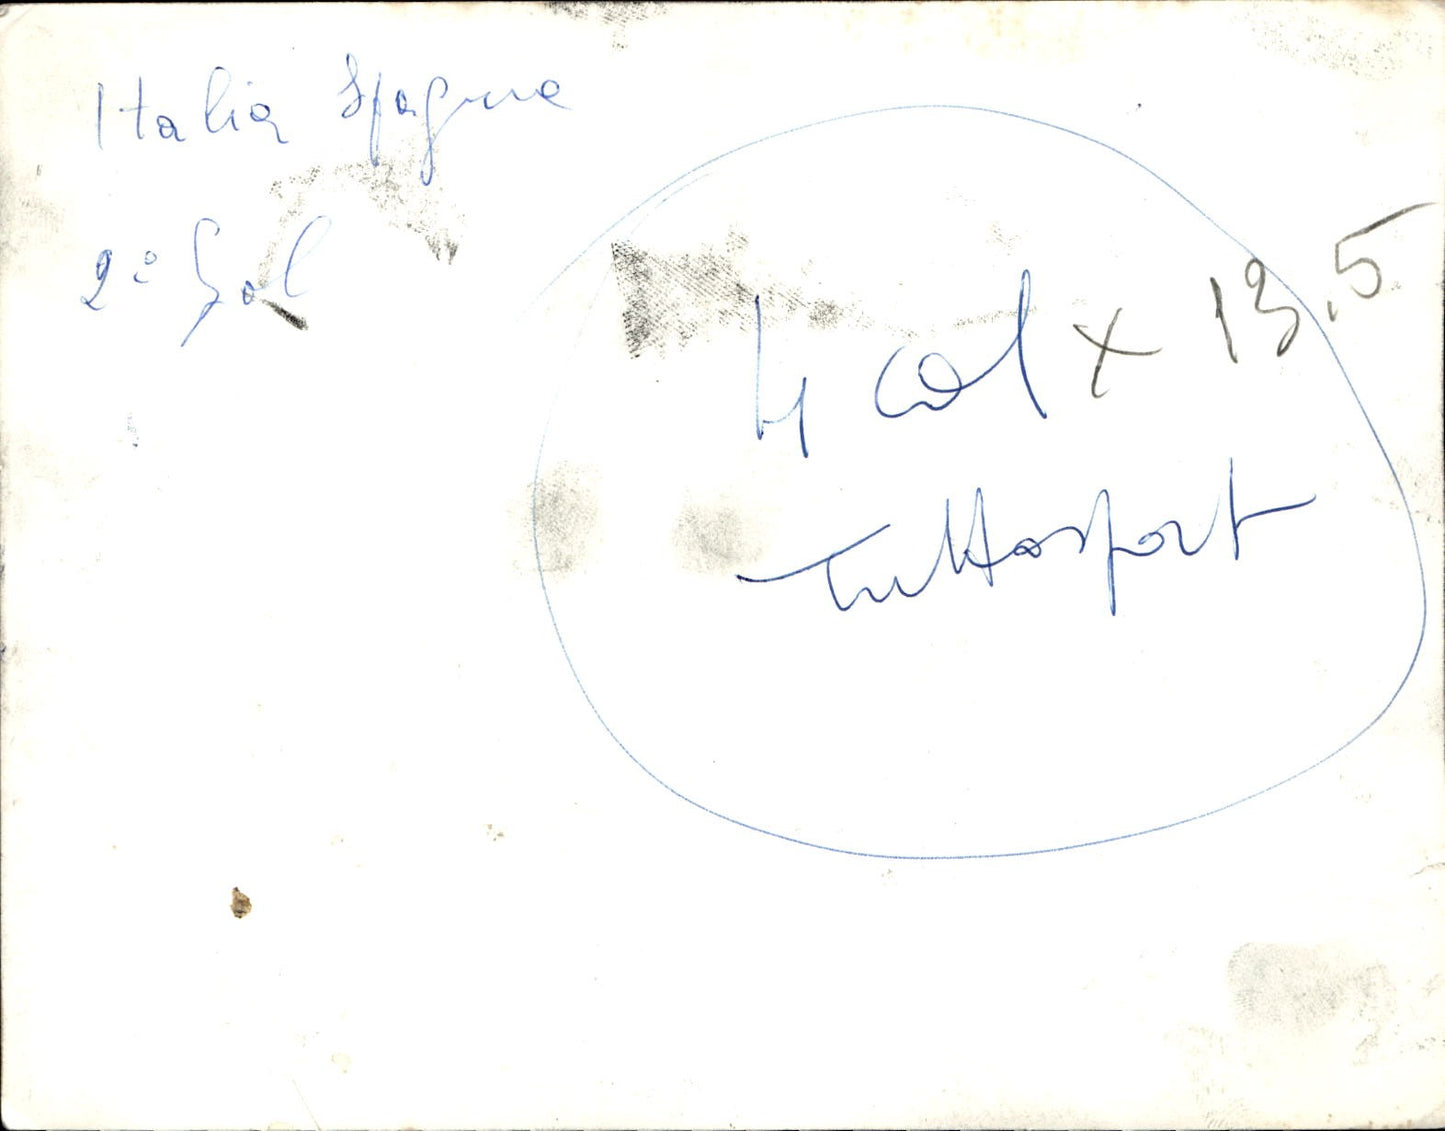 Italia Spagna
2° Gol
4 col x 13,5
Tuttosport